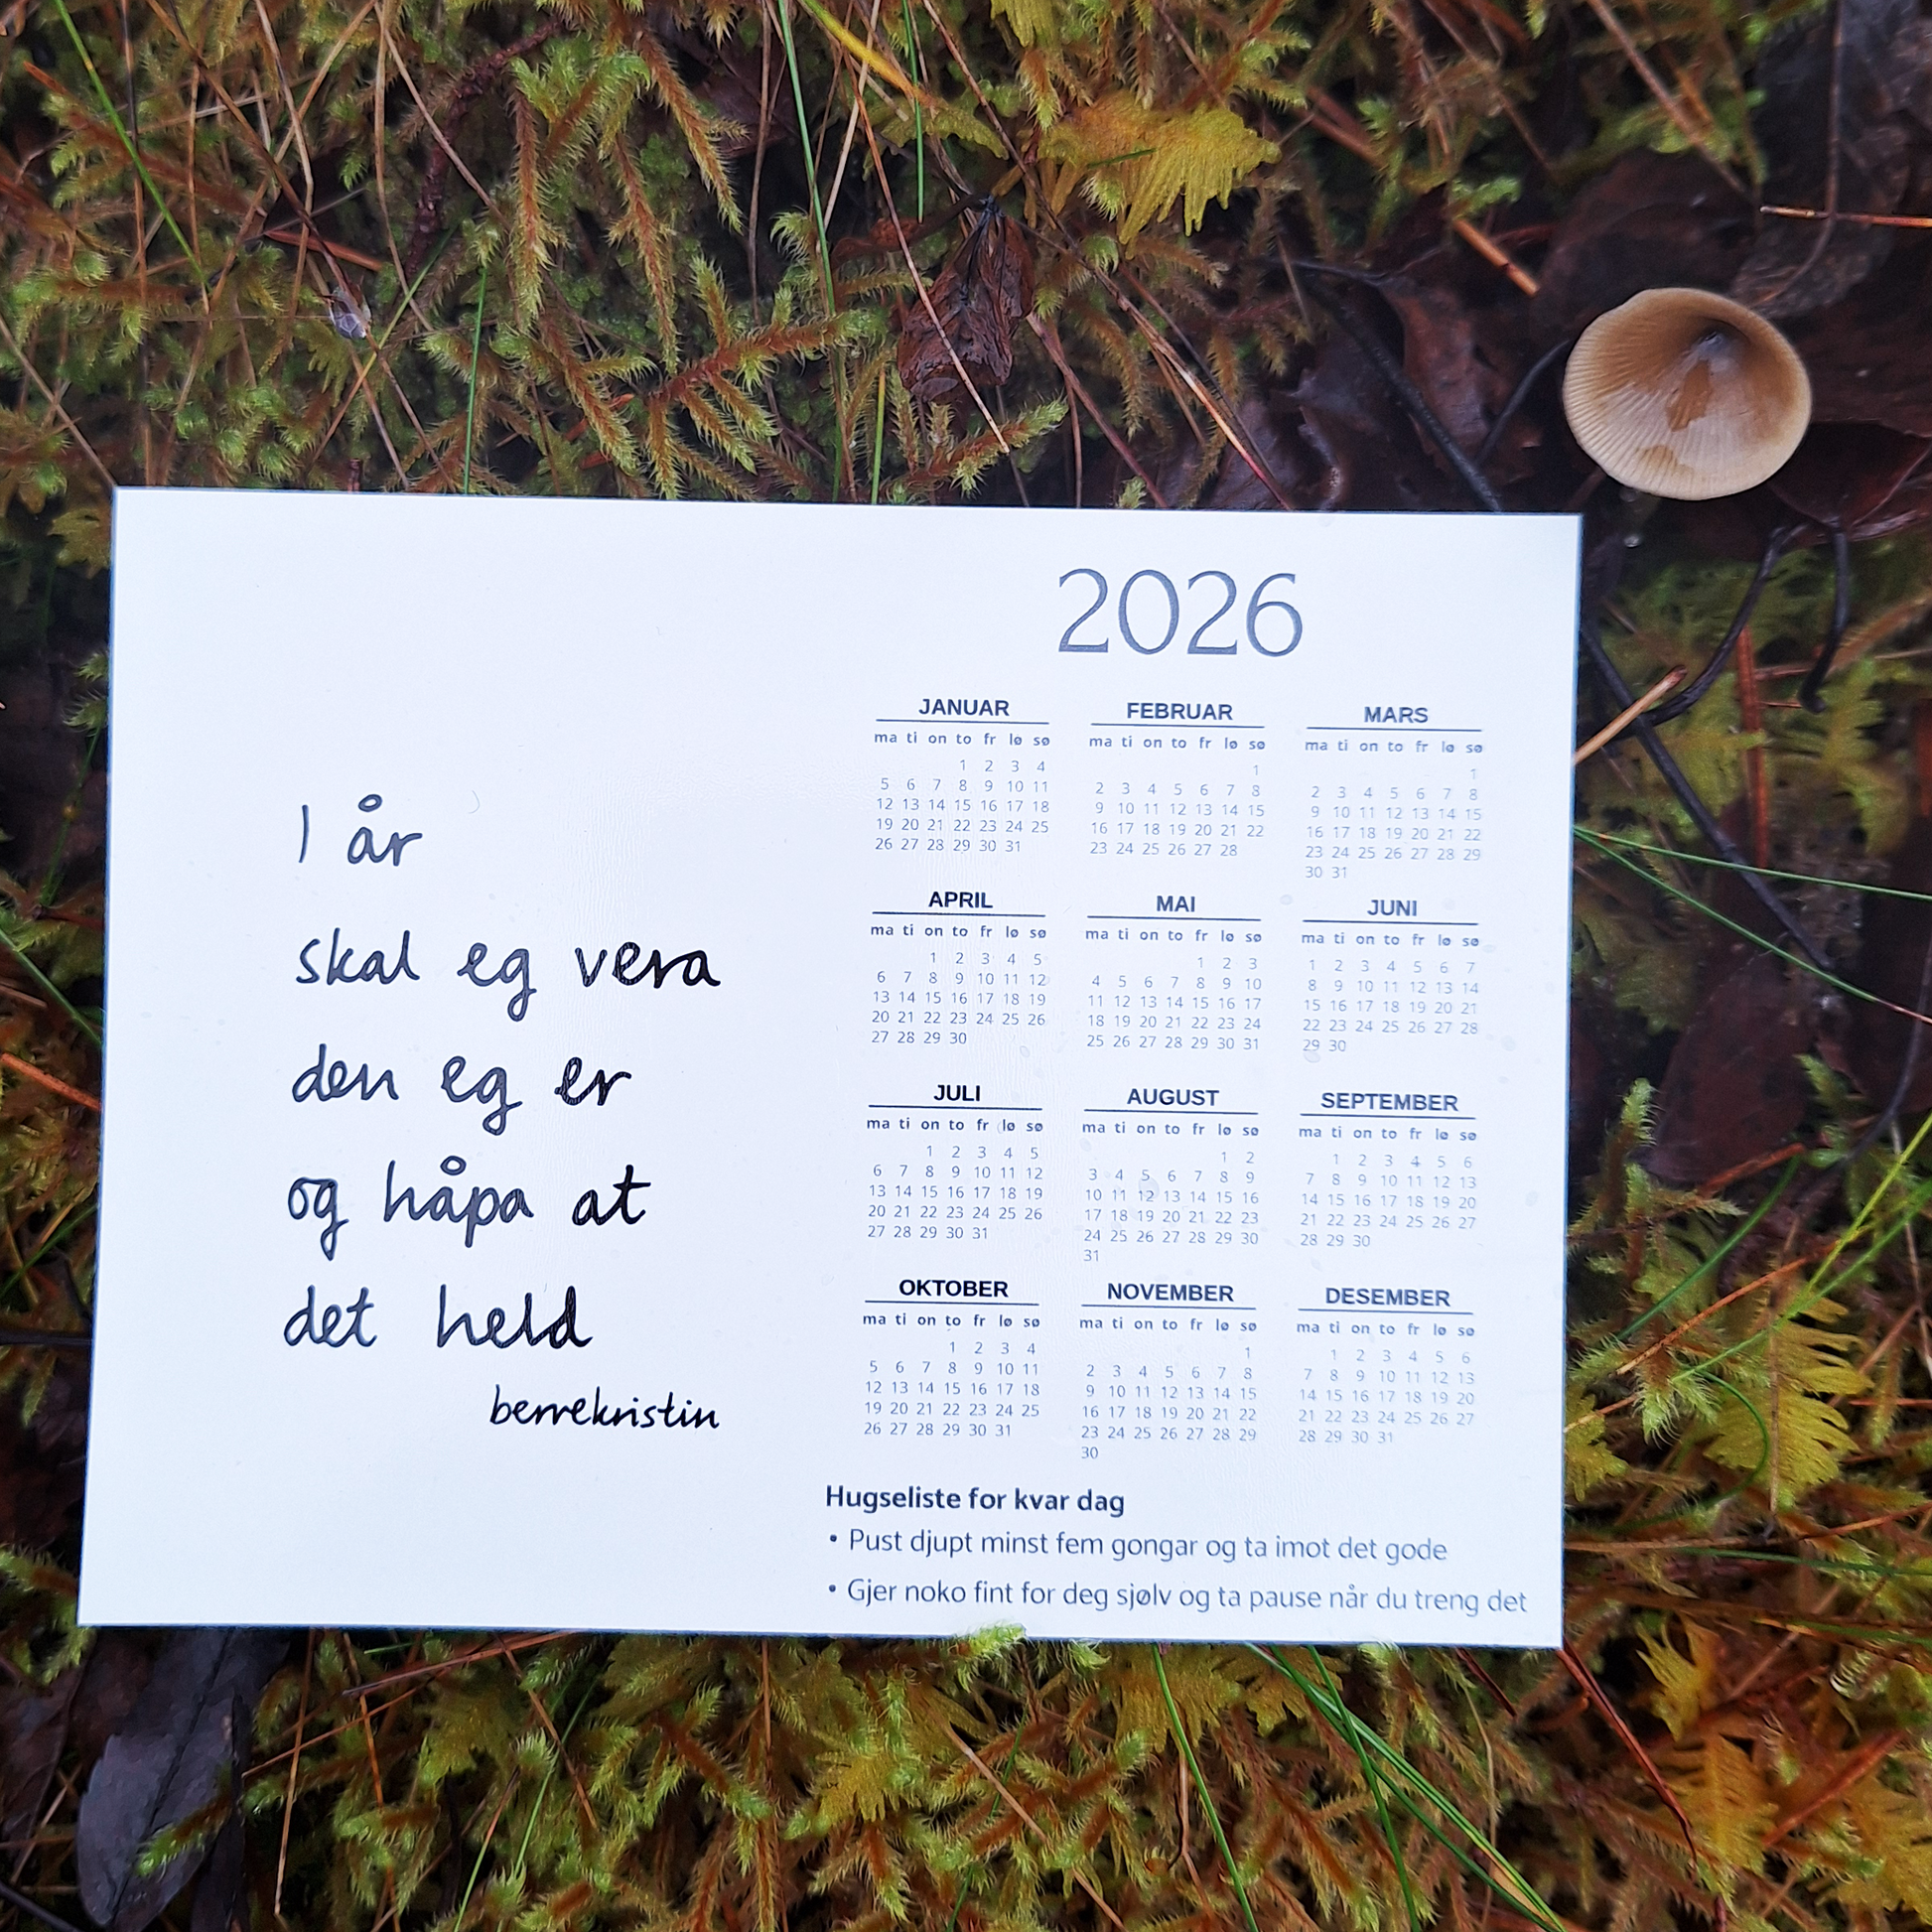 I år
skal eg vera
den eg er
og håpa at
det held
berrekristin
2026
JANUAR
ma ti on to fr lø sø
1 2 3 4
5 6 7 8 9 10 11
12 13 14 15 16 17 18
19 20 21 22 23 24 25
26 27 28 29 30 31
FEBRUAR
ma ti on to fr lø sø
1
2 3 4 5 6 7 8
9 10 11 12 13 14 15
16 17 18 19 20 21 22
23 24 25 26 27 28
MARS
ma ti on to fr lø sø
1
2 3 4 5 6 7 8
9 10 11 12 13 14 15
16 17 18 19 20 21 22
23 24 25 26 27 28 29
30 31
APRIL
ma ti on to fr lø sø
1 2 3 4 5
6 7 8 9 10 11 12
13 14 15 16 17 18 19
20 21 22 23 24 25 26
27 28 29 30
MAI
ma ti on to fr lø sø
1 2 3
4 5 6 7 8 9 10
11 12 13 14 15 16 17
18 19 20 21 22 23 24
25 26 27 28 29 30 31
JUNI
ma ti on to fr lø sø
1 2 3 4 5 6 7
8 9 10 11 12 13 14
15 16 17 18 19 20 21
22 23 24 25 26 27 28
29 30
JULI
ma ti on to fr lø sø
1 2 3 4 5
6 7 8 9 10 11 12
13 14 15 16 17 18 19
20 21 22 23 24 25 26
27 28 29 30 31
AUGUST
ma ti on to fr lø sø
1 2
3 4 5 6 7 8 9
10 11 12 13 14 15 16
17 18 19 20 21 22 23
24 25 26 27 28 29 30
31
SEPTEMBER
ma ti on to fr lø sø
1 2 3 4 5 6
7 8 9 10 11 12 13
14 15 16 17 18 19 20
21 22 23 24 25 26 27
28 29 30
OKTOBER
ma ti on to fr lø sø
1 2 3 4
5 6 7 8 9 10 11
12 13 14 15 16 17 18
19 20 21 22 23 24 25
26 27 28 29 30 31
NOVEMBER
ma ti on to fr lø sø
1
2 3 4 5 6 7 8
9 10 11 12 13 14 15
16 17 18 19 20 21 22
23 24 25 26 27 28 29
30
DESEMBER
ma ti on to fr lø sø
1 2 3 4 5 6
7 8 9 10 11 12 13
14 15 16 17 18 19 20
21 22 23 24 25 26 27
28 29 30 31
Hugseliste for kvar dag
• Pust djupt minst fem gongar og ta imot det gode
• Gjer noko fint for deg sjølv og ta pause når du treng det